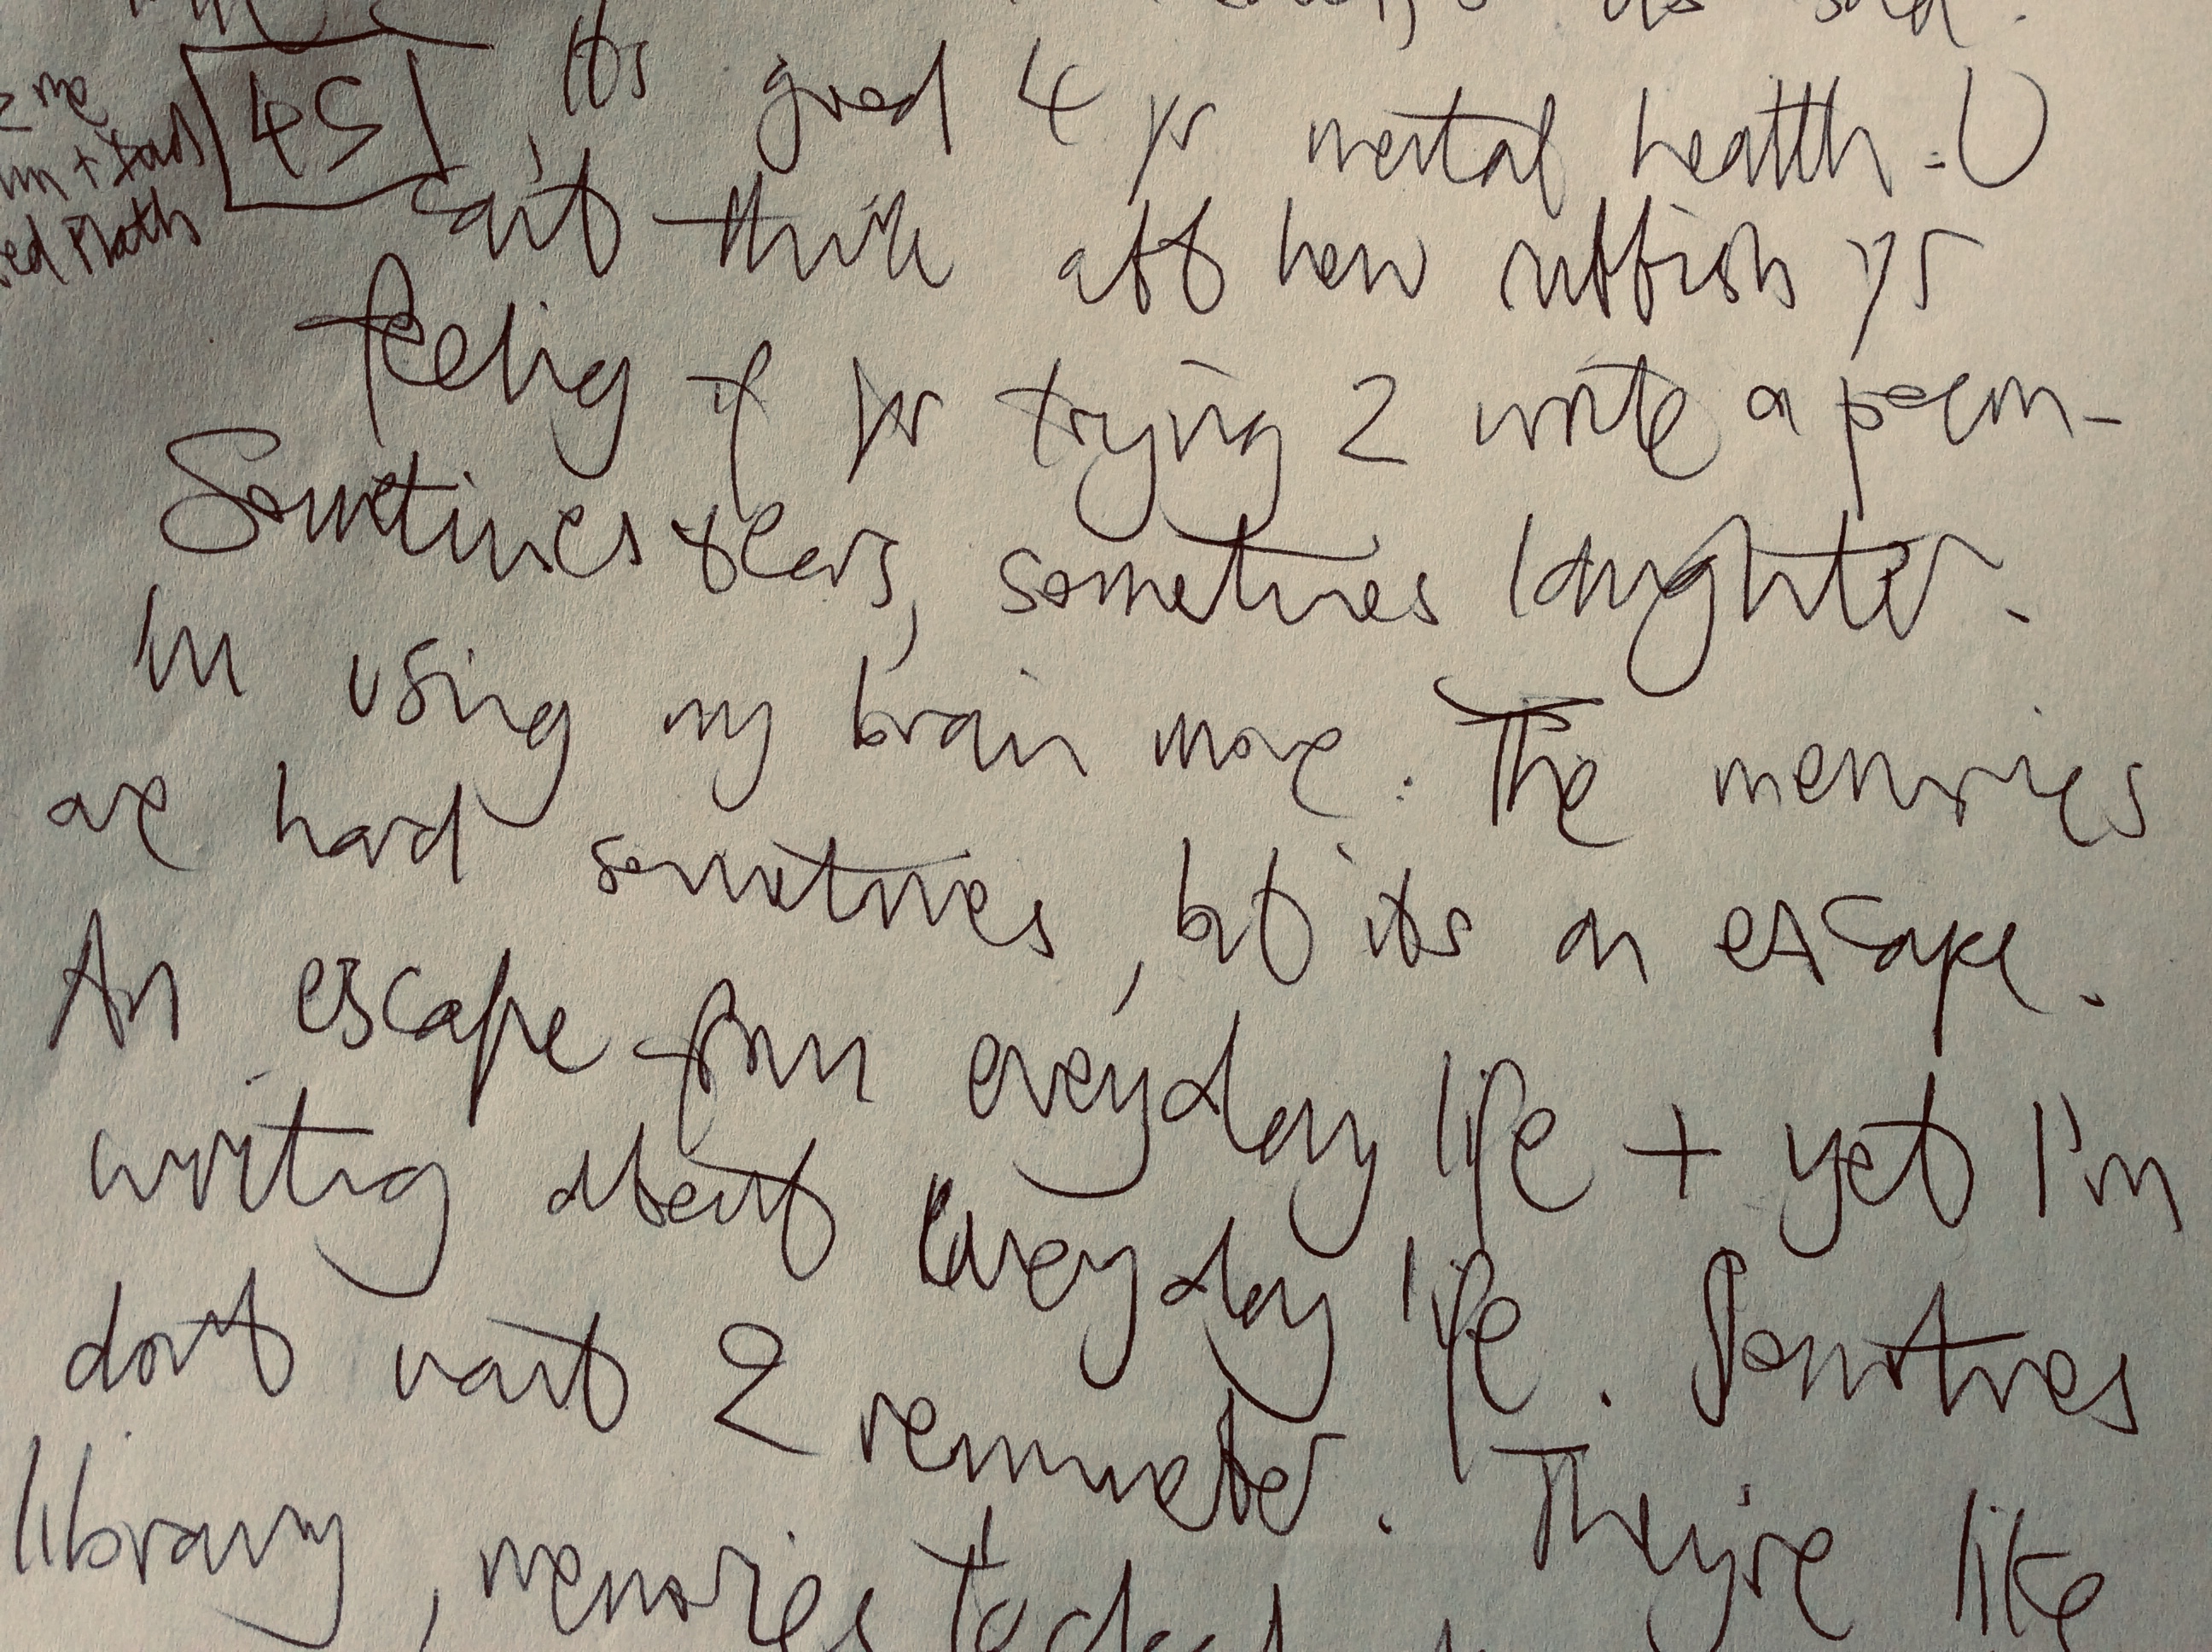 as said.
me
45 , Its good 4 yr mental health. U
+ Dad
ed Plath
can't think abt how rubbish yr
feeling if yr trying 2 write a poem -
Sometimes tears, sometimes laughter.
Im using my brain more. The memories
are hard sometimes, bt its an escape.
An escape from everyday life + yet I'm
writing about everyday life. Sometimes
don't want 2 remember. They're like
library, memories tucked